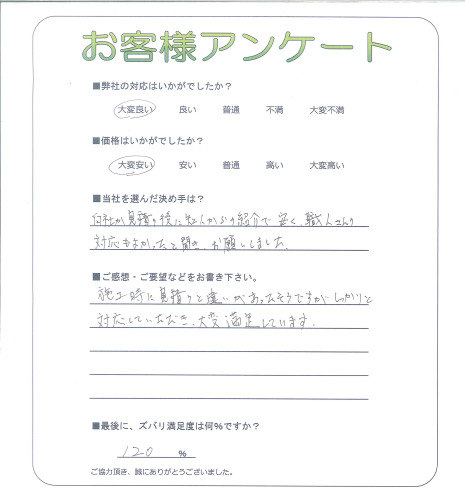 お客様アンケート
■弊社の対応はいかがでしたか？
大変良い 良い 普通 不満 大変不満
■価格はいかがでしたか？
大変安い 安い 普通 高い 大変高い
■当社を選んだ決め手は？
何社か見積り後に知人からの紹介で安く、職人さんの
対応もよかったと聞き、お願いしました。
■ご感想・ご要望などをお書き下さい。
施工時に見積りと違いがあったそうですがしっかりと
対応していただき、大変満足しています。
■最後に、ズバリ満足度は何％ですか？
120 ％
ご協力頂き、誠にありがとうございました。